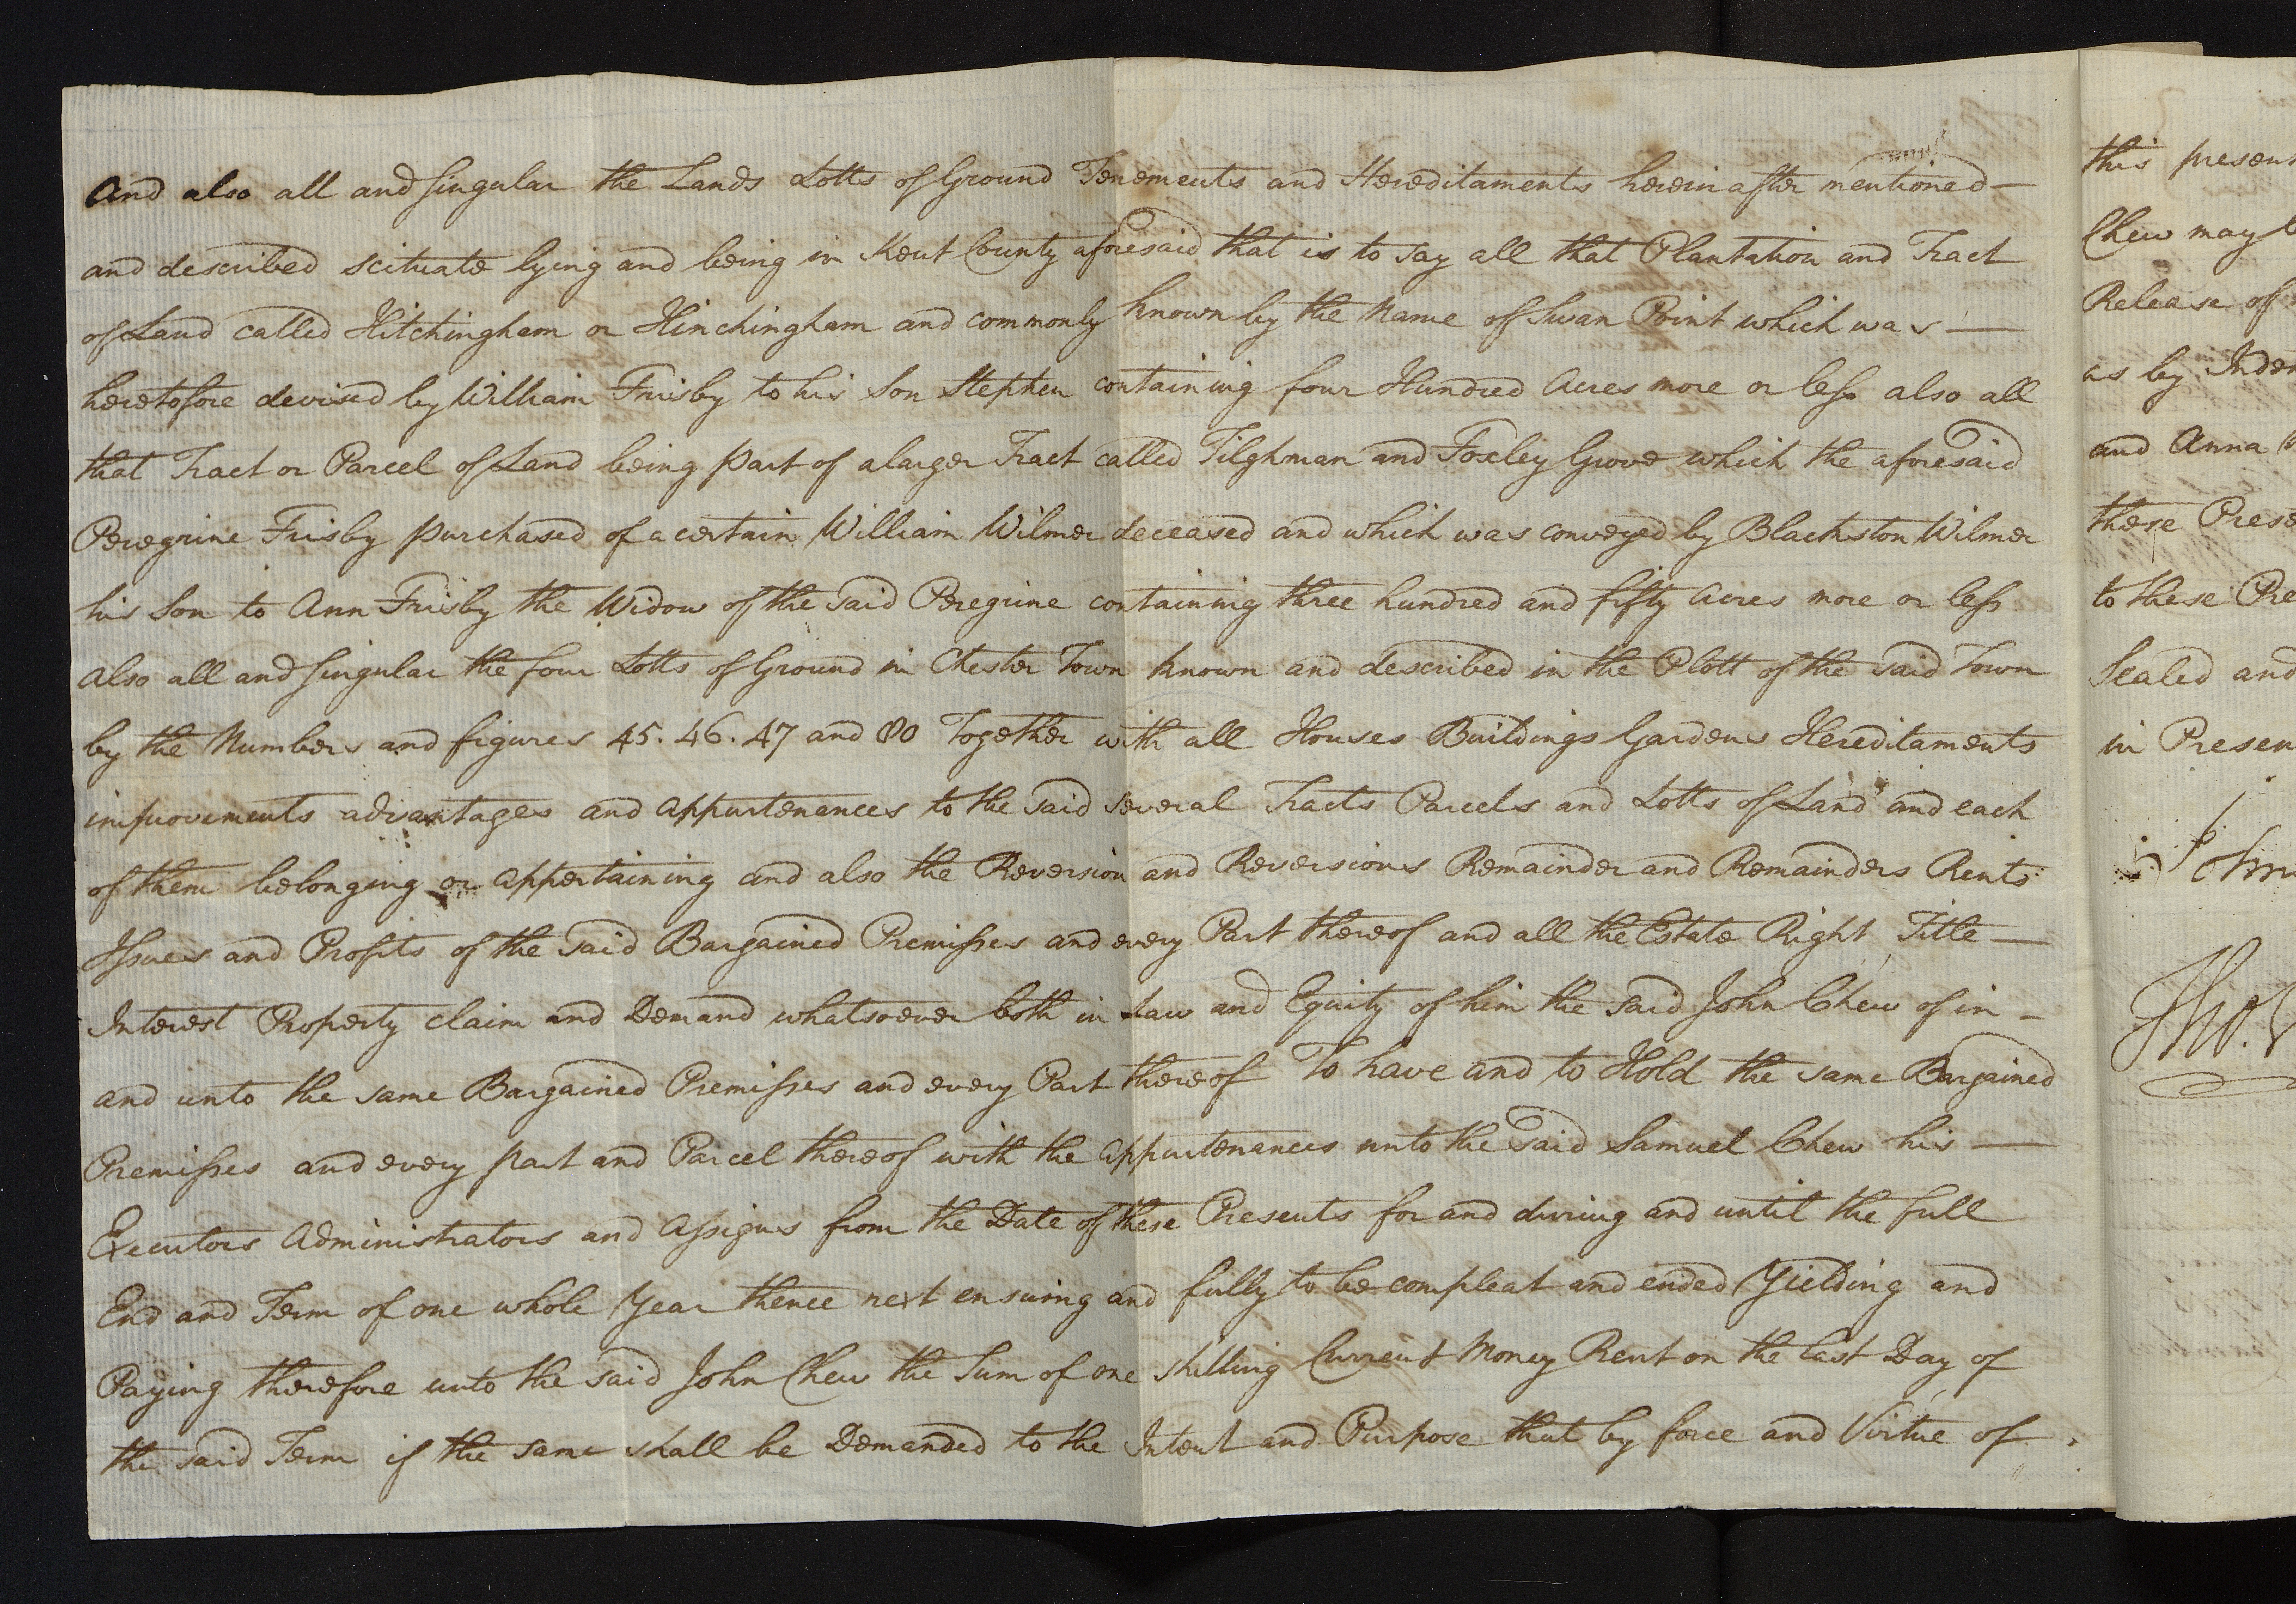 And also all and singular the Lands Lotts of Ground Tenements and Hereditaments herein after mentioned —
and described scituate lying and being in Kent County aforesaid that is to say all that Plantation and Tract
of Land called Hitchingham or Hinchingham and commonly known by the Name of Swan Point which was —
heretofore devised by William Frisby to his Son Stephen containing four Hundred Acres more or less also all
that Tract or Parcel of Land being part of a larger Tract called Tilghman and Foxley Grove which the aforesaid
Peregrine Frisby purchased of a certain William Wilmer deceased and which was conveyed by Blackston Wilmer
his Son to Ann Frisby the Widow of the said Peregrine containing three hundred and fifty Acres more or less
also all and singular the four Lotts of Ground in Chester Town known and described in the Plott of the said Town
by the Numbers and figures 45. 46. 47 and 80 Together with all Houses Buildings Gardens Hereditaments
improvements advantages and appurtenances to the said several Tracts Parcels and Lotts of Land and each
of them belonging or appertaining and also the Reversion and Reversions Remainder and Remainders Rents
Issues and Profits of the said Bargained Premisses and every Part thereof and all the Estate Right Title —
Interest Property claim and Demand whatsoever both in Law and Equity of him the said John Chew of in -
and unto the same Bargained Premisses and every Part thereof To have and to Hold the same Bargained
Premisses and every part and Parcel thereof with the appurtenances unto the said Samuel Chew his —
Executors Administrators and Assigns from the Date of these Presents for and during and until the full
End and Term of one whole Year thence next ensuing and fully to be compleat and ended Yielding and
Paying therefore unto the said John Chew the Sum of one shilling Current Money Rent on the last Day of
the said Term if the same shall be Demanded to the Intent and Purpose that by force and Virtue of
this presen
Chew may
Release of
as by Inden
and Anna
these Prese
to these Pre
Sealed and
in Presen
John
Tho.